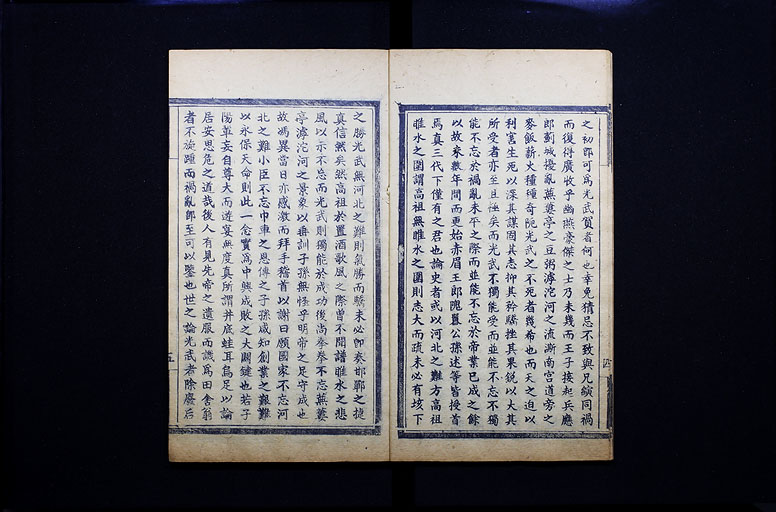 之初卽可爲光武賀者何也幸免猜忌不致與兄縯同禍
而復得廣收乎幽燕豪傑之士乃未幾而王子接起兵應
郎薊城擾亂蕪蔞亭之豆粥滹沱河之流澌南宮道旁之
麥飯薪火種種奇阨光武之不死者幾希也而天之迫以
利害生死以深其謀固其志抑其矜驕挫其果銳以大其
所受者亦至且極矣而光武不獨能受而並能不忘不獨
能不忘於禍亂未平之際而並能不忘於帝業已成之餘
以故來數年間而更始赤眉王郎隗囂公孫述等皆授首
焉真三代下僅有之君也論史者或以河北之難方高祖
睢水之圍謂高祖無睢水之圍則志大而疏未必有垓下
之勝光武無河北之難則氣勝而驕未必卽奏邯鄲之捷
真信然矣然高祖於置酒歌風之際曾不聞譜睢水之悲
風以示不忘而光武則獨能於成功後尚拳拳不忘蕪蔞
亭滹沱河之景象以垂訓子孫無怪乎明帝之足守成也
故馮異當日亦感激而拜手稽首以謝曰願國家不忘河
北之難小臣不忘巾車之恩傳之子孫咸知創業之艱難
以永保天命則此一念實爲中興成敗之大關鍵也若子
陽革妄自尊大而遊宴無度真所謂井底蛙耳烏足以論
居安思危之道哉後人有見先帝之遺服而譏爲田舍翁
者不旋踵而禍亂卽至可以鑒也世之論光武者除廢后
四
五